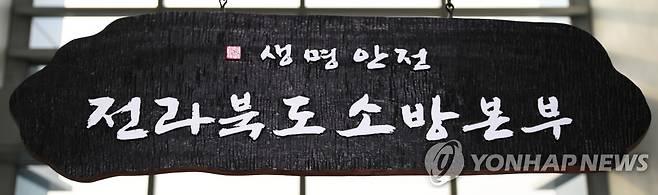 생명안전
전라북도소방본부
YONHAP NEWS